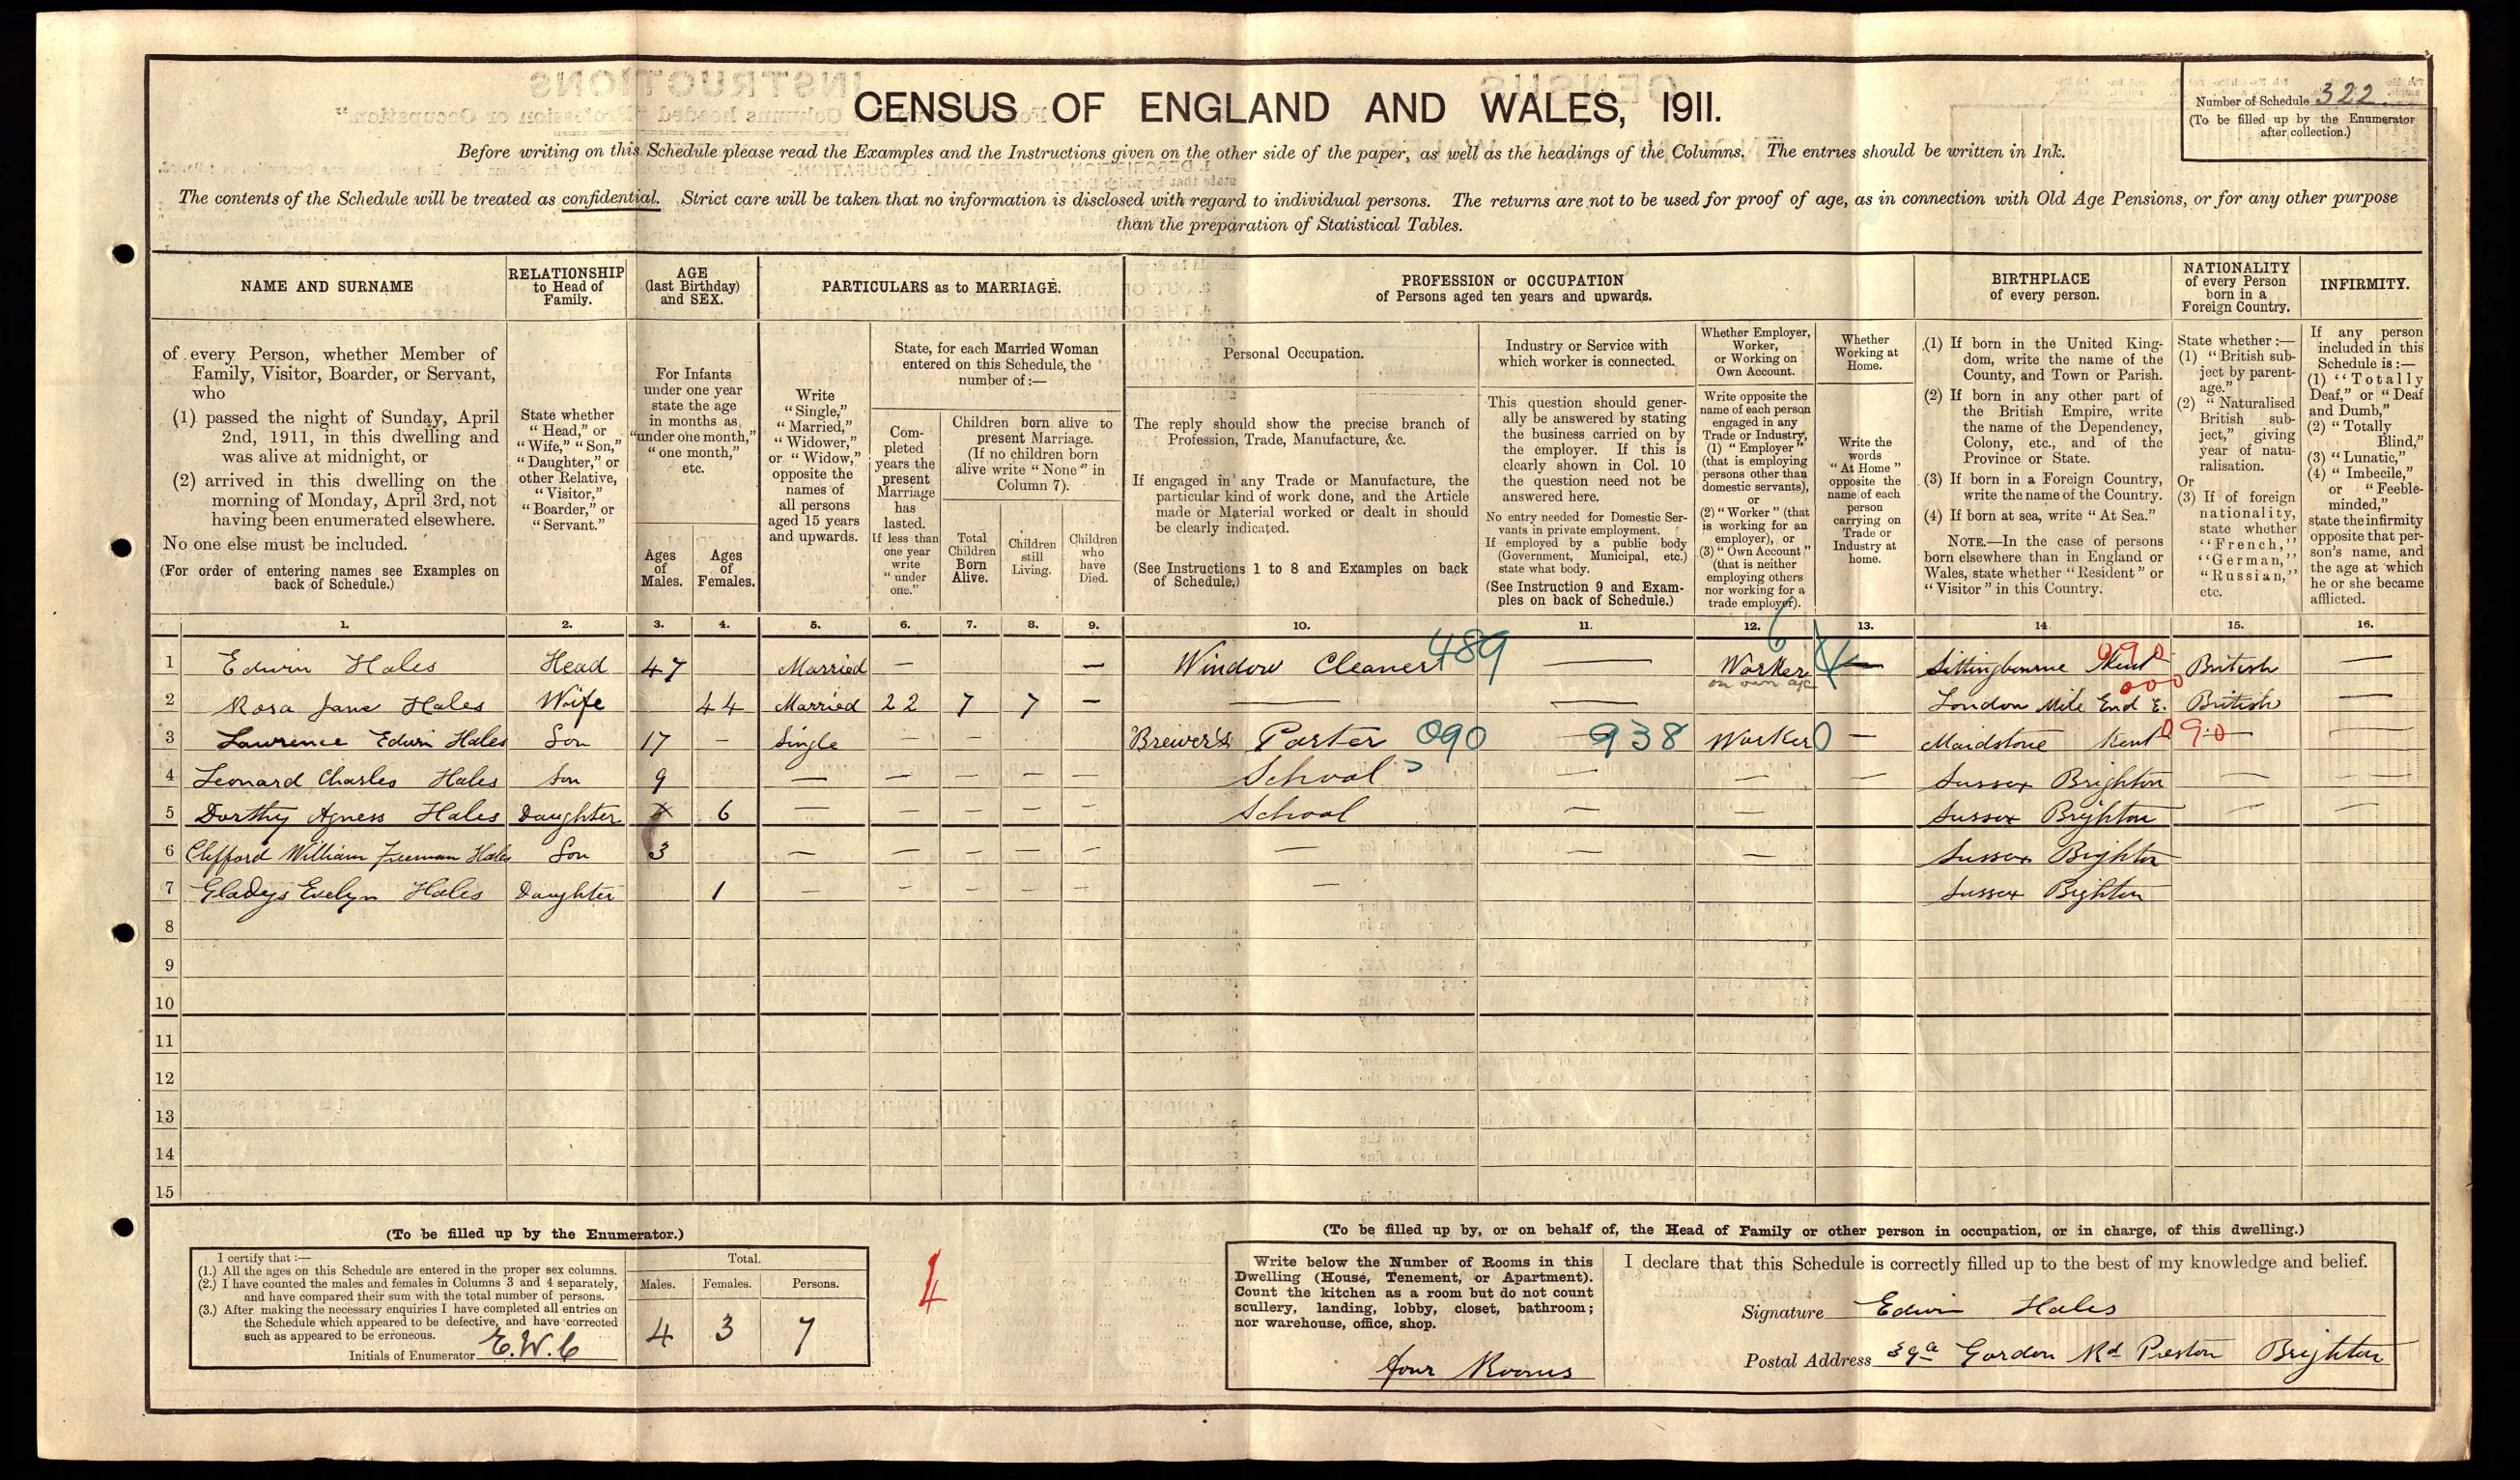 CENSUS OF ENGLAND AND WALES, 1911.
Number of Schedule 322
(To be filled up by the Enumerator
after collection.)
Before writing on this Schedule please read the Examples and the Instructions given on the other side of the paper, as well as the headings of the Columns. The entries should be written in Ink.
The contents of the Schedule will be treated as confidential. Strict care will be taken that no information is disclosed with regard to individual persons. The returns are not to be used for proof of age, as in connection with Old Age Pensions, or for any other purpose
than the preparation of Statistical Tables.
NAME AND SURNAME
of every Person, whether Member of
Family, Visitor, Boarder, or Servant,
who
(1) passed the night of Sunday, April
2nd, 1911, in this dwelling and
was alive at midnight, or
(2) arrived in this dwelling on the
morning of Monday, April 3rd, not
having been enumerated elsewhere.
No one else must be included.
(For order of entering names see Examples on
back of Schedule.)
RELATIONSHIP
to Head of
Family.
State whether
"Head," or
"Wife," "Son,"
"Daughter," or
other Relative,
"Visitor,"
"Boarder," or
"Servant."
AGE
(last Birthday)
and SEX.
For Infants
under one year
state the age
in months as,
"under one month,"
"one month,"
etc.
Ages
of
Males.
Ages
of
Females.
PARTICULARS as to MARRIAGE.
Write
"Single,"
"Married,"
"Widower,"
or "Widow,"
opposite the
names of
all persons
aged 15 years
and upwards.
State, for each Married Woman
entered on this Schedule, the
number of:—
Com-
pleted
years the
present
Marriage
has
lasted.
If less than
one year
write
"under
one."
Children born alive to
present Marriage.
(If no children born
alive write "None" in
Column 7).
Total
Children
Born
Alive.
Children
still
Living.
Children
who
have
Died.
PROFESSION or OCCUPATION
of Persons aged ten years and upwards.
Personal Occupation.
The reply should show the precise branch of
Profession, Trade, Manufacture, &c.
If engaged in any Trade or Manufacture, the
particular kind of work done, and the Article
made or Material worked or dealt in should
be clearly indicated.
(See Instructions 1 to 8 and Examples on back
of Schedule.)
Industry or Service with
which worker is connected.
This question should gener-
ally be answered by stating
the business carried on by
the employer. If this is
clearly shown in Col. 10
the question need not be
answered here.
No entry needed for Domestic Ser-
vants in private employment.
If employed by a public body
(Government, Municipal, etc.)
state what body.
(See Instruction 9 and Exam-
ples on back of Schedule.)
Whether Employer,
Worker,
or Working on
Own Account.
Write opposite the
name of each person
engaged in any
Trade or Industry,
(1) "Employer"
(that is employing
persons other than
domestic servants),
or
(2) "Worker" (that
is working for an
employer), or
(3) "Own Account"
(that is neither
employing others
nor working for a
trade employer).
Whether
Working at
Home.
Write the
words
"At Home"
opposite the
name of each
person
carrying on
Trade or
Industry at
home.
BIRTHPLACE
of every person.
(1) If born in the United King-
dom, write the name of the
County, and Town or Parish.
(2) If born in any other part of
the British Empire, write
the name of the Dependency,
Colony, etc., and of the
Province or State.
(3) If born in a Foreign Country,
write the name of the Country.
(4) If born at sea, write "At Sea."
NOTE.—In the case of persons
born elsewhere than in England or
Wales, state whether "Resident" or
"Visitor" in this Country.
NATIONALITY
of every Person
born in a
Foreign Country.
State whether:—
(1) "British sub-
ject by parent-
age."
(2) "Naturalised
British sub-
ject," giving
year of natu-
ralisation.
Or
(3) If of foreign
nationality,
state whether
"French,"
"German,"
"Russian,"
etc.
INFIRMITY.
If any person
included in this
Schedule is:—
(1) "Totally
Deaf," or "Deaf
and Dumb,"
(2) "Totally
Blind,"
(3) "Lunatic,"
(4) "Imbecile,"
or "Feeble-
minded,"
state the infirmity
opposite that per-
son's name, and
the age at which
he or she became
afflicted.
1. 2. 3. 4. 5. 6. 7. 8. 9. 10. 11. 12. 13. 14. 15. 16.
1 Edwin Hales Head 47 Married — — Window Cleaner 489 — Worker 6 — Sittingbourne Kent 090 British —
on own a/c
2 Rosa Jane Hales Wife 44 Married 22 7 7 — — — London Mile End E. 000 British —
3 Lawrence Edwin Hales Son 17 — Single — — Brewer's Porter 090 — 938 Worker 0 — Maidstone Kent 090 — —
4 Leonard Charles Hales Son 9 — — — — — School — — — Sussex Brighton — — —
5 Dorthy Agness Hales Daughter 6 — — — — — School — — Sussex Brighton — —
6 Clifford William Freeman Hales Son 3 — — — — — — — — Sussex Brighton
7 Gladys Evelyn Hales Daughter 1 — — — — — — Sussex Brighton
8
9
10
11
12
13
14
15
(To be filled up by the Enumerator.)
I certify that:—
(1.) All the ages on this Schedule are entered in the proper sex columns.
(2.) I have counted the males and females in Columns 3 and 4 separately,
and have compared their sum with the total number of persons.
(3.) After making the necessary enquiries I have completed all entries on
the Schedule which appeared to be defective, and have corrected
such as appeared to be erroneous.
Initials of Enumerator E.W.C
Total.
Males. Females. Persons.
4 3 7
4
(To be filled up by, or on behalf of, the Head of Family or other person in occupation, or in charge, of this dwelling.)
Write below the Number of Rooms in this
Dwelling (House, Tenement, or Apartment).
Count the kitchen as a room but do not count
scullery, landing, lobby, closet, bathroom;
nor warehouse, office, shop.
four Rooms
I declare that this Schedule is correctly filled up to the best of my knowledge and belief.
Signature Edwin Hales
Postal Address 39a Gordon Rd Preston Brighton